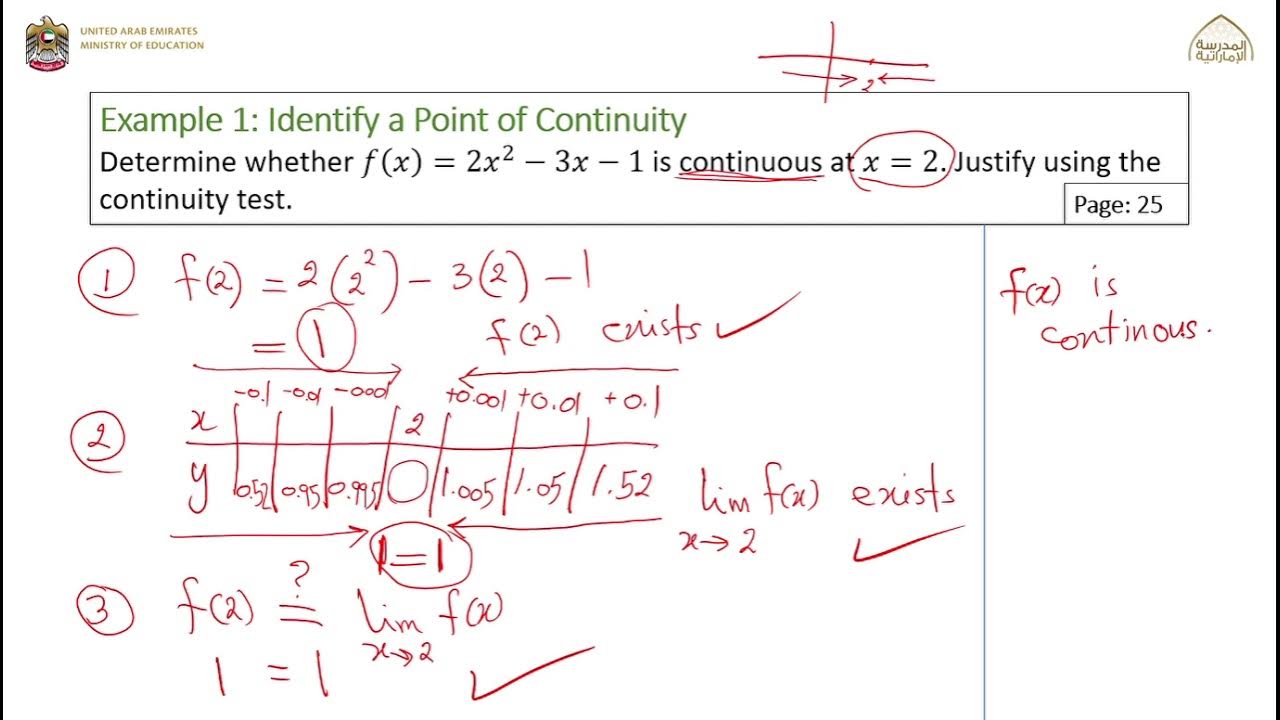 UNITED ARAB EMIRATES
MINISTRY OF EDUCATION
المدرسة
الإماراتية
2
Example 1: Identify a Point of Continuity
Determine whether f(x) = 2x² − 3x − 1 is continuous at x = 2. Justify using the
continuity test.
Page: 25
1 f(2) = 2(2²) − 3(2) − 1
= 1 f(2) exists ✓
-0.1 -0.01 -0.001 +0.001 +0.01 +0.1
2 x 2
y 0.52 0.95 0.995 1.005 1.05 1.52
lim f(x) exists
x→2 ✓
1=1
3 f(2) ≟ lim f(x)
x→2
1 = 1 ✓
f(x) is
continous.